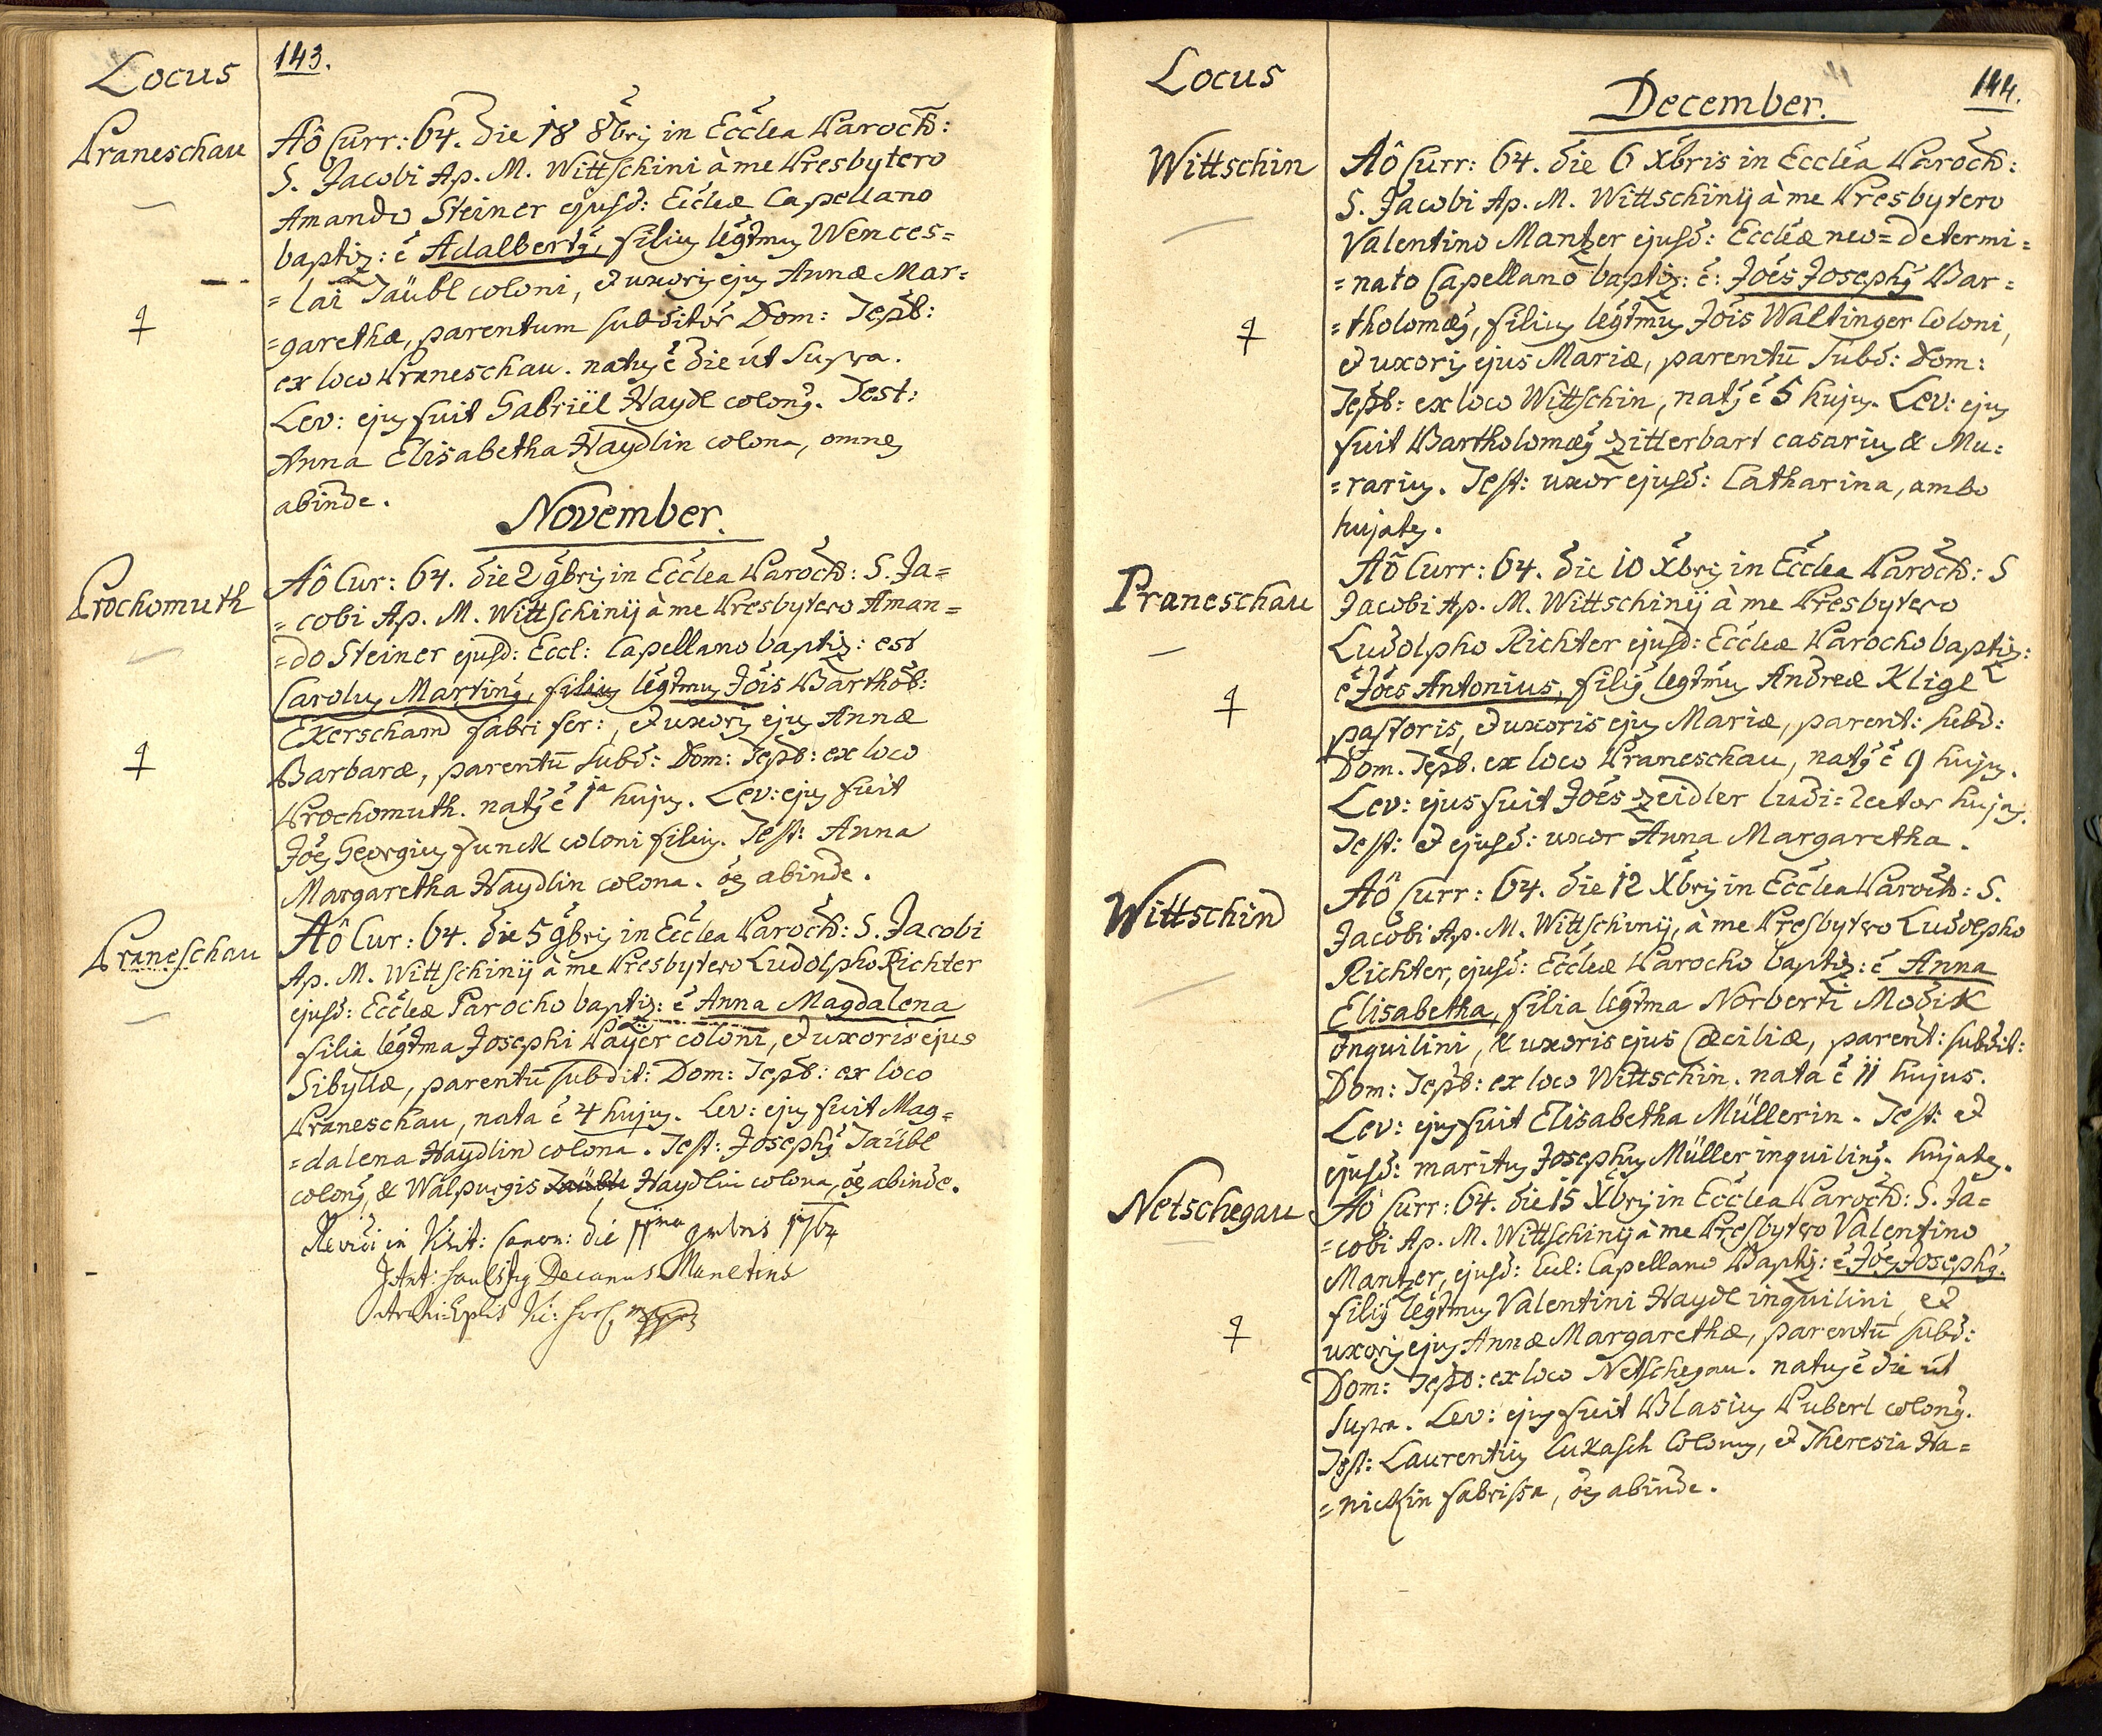 143.
Locus
Praneschau
Aô Curr: 64. die 18 8bris in Ecclea Paroch:
S. Jacobi Ap. M. Wittschini à me Presbytero
Amando Steiner ejusd: Eccleæ Capellano
baptiz: ẽ Adalbertus, filius legtmus Wences=
=lai Taübl coloni, et uxoris ejus Annæ Mar=
=garethæ, parentum subditor Dom: Tepl:
ex loco Praneschau. natus ẽ die ut supra.
Lev: ejus fuit Gabriël Haydl colonus. Test:
Anna Elisabetha Haydlin colona, omnes
abinde.
November.
Prochomuth
Aô Cur: 64. die 2 9bris in Ecclea Paroch: S. Ja=
=cobi Ap. M. Wittschinij à me Presbytero Aman=
=do Steiner ejusd: Eccl: Capellano baptiz: est
Carolus Martinus, filius legtmus Jois Barthol:
Ekerschand fabri fer:, et uxoris ejus Annæ
Barbaræ, parentū subd: Dom: Tepl: ex loco
Prochomuth. natus ẽ 1a hujus. Lev: ejus fuit
Joes Georgius Funck coloni filius. Test: Anna
Margaretha Haydlin colona. oes abinde.
Praneschau
Aô Cur: 64. die 5 9bris in Ecclea Paroch: S. Jacobi
Ap. M. Wittschinij à me Presbytero Ludolpho Richter
ejusd: Eccleæ Parocho baptiz: ẽ Anna Magdalena
filia legtma Josephi Payer coloni, et uxoris ejus
Sibyllæ, parentū subdit: Dom: Tepl: ex loco
Praneschau, nata ẽ 4 hujus. Lev: ejus fuit Mag=
=dalena Haydlin colona. Test: Josephus Taübl
colonus, & Walpurgis Haydlin colona, oes abinde.
Revidi in Visit: Canon: die 11ma 9mbris 1764
J Ant: Decanus
Archi-Eplis
144.
Locus
December.
Wittschin
Aô Curr: 64. die 6 Xbris in Ecclea Paroch:
S. Jacobi Ap. M. Wittschinij à me Presbytero
Valentino Mantzer ejusd: Eccleæ neo=determi=
=nato Capellano baptiz: ẽ: Joes Josephus Bar=
=tholomæus, filius legtmus Jois Waltinger Coloni,
et uxoris ejus Mariæ, parentū subd: Dom:
Tepl: ex loco Wittschin, natus ẽ 5 hujus. Lev: ejus
fuit Bartholomæus Zitterbart casarius & Mu=
=rarius. Test: uxor ejusd: Catharina, ambo
hujates.
Praneschau
Aô Curr: 64. die 10 Xbris in Ecclea Paroch: S
Jacobi Ap. M. Wittschinij à me Presbytero
Ludolpho Richter ejusd: Eccleæ Parocho baptiz:
ẽ Joes Antonius, filius legtmus Andreæ Kligl
pastoris, et uxoris ejus Mariæ, parent: subd:
Dom. Tepl. ex loco Praneschau, natus ẽ 9 hujus.
Lev: ejus fuit Joes Zeidler ludi=rector hujas.
Test: et ejusd: uxor Anna Margaretha.
Wittschin
Aô Curr: 64. die 12 Xbris in Ecclea Paroch: S.
Jacobi Ap. M. Wittschinij, à me Presbytero Ludolpho
Richter, ejusd: Eccleæ Parocho baptiz: ẽ Anna
Elisabetha, filia legtma Norberti Modik
Inquilini, & uxoris ejus Cæciliæ, parent: subdit:
Dom: Tepl: ex loco Wittschin. nata ẽ 11 hujus.
Lev: ejus fuit Elisabetha Müllerin. Test: et
ejusd: maritus Josephus Müller inquilinus. hujates.
Netschegau
Aô Curr: 64. die 15 Xbris in Ecclea Paroch: S. Ja=
=cobi Ap. M. Wittschinij à me Presbytero Valentino
Mantzer, ejusd: Eccl: Capellano Baptiz: ẽ Joes Josephus.
filius legtmus Valentini Haydl inquilini, et
uxoris ejus Annæ Margarethæ, parentū subd:
Dom: Tepl: ex loco Netschegau. natus ẽ die ut
supra. Lev: ejus fuit Blasius Puberl colonus.
Test: Laurentius Lukasch Colonus, et Theresia Ha=
=nickin fabrissa, oes abinde.